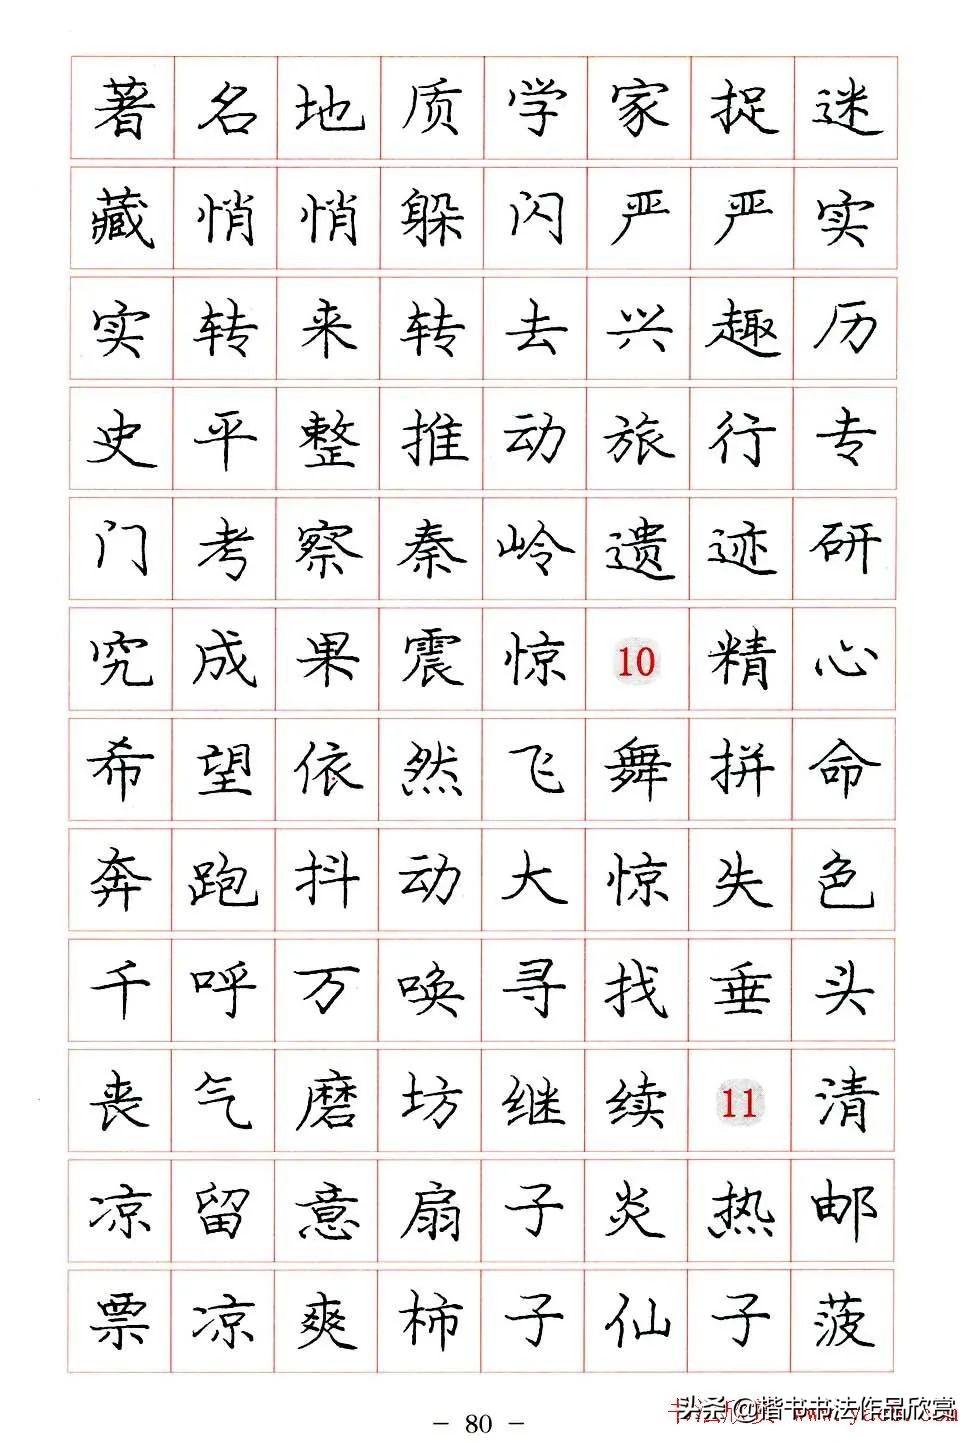 著名地质学家捉迷
藏悄悄躲闪严严实
实转来转去兴趣历
史平整推动旅行专
门考察秦岭遗迹研
究成果震惊10精心
希望依然飞舞拼命
奔跑抖动大惊失色
千呼万唤寻找垂头
丧气磨坊继续11清
凉留意扇子炎热邮
票凉爽柿子仙子菠
- 80 -
头条@楷书书法作品欣赏